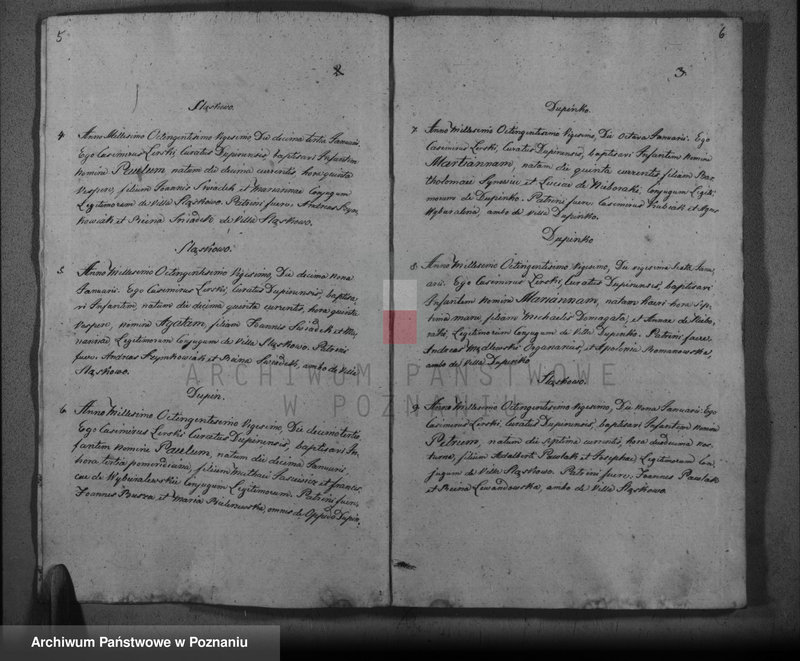 5
2
Słąskowo.
4. Anno Millesimo Octingentisimo Vigesimo, Die decima tertia Januarii,
Ego Casimirus Lerski, Curatus Dupinensis, baptisavi Infantem
nomine Paulum natum die decima currentis, hora quinta
Vesperi, filium Joannis Swiadek et Mariannae Conjugum
Legitimorum de Villa Słąskowo. Patrini fuere Andreas Szym
kowiak et Sniadek de Villa Słąskowo.
Słąskowo.
5. Anno Millesimo Octingentisimo Vigesimo, Die decima nona
Januarii. Ego Casimirus Lerski, Curatus Dupinensis, baptisa-
vi Infantem, natum die decima quinta currentis, hora quinta
Vesperi, nomine Agatam, filiam Joannis Swiadek et Ma-
riannae, Legitimorum Conjugum de Villa Słąskowo. Patrini
fuere Andreas Szymkowiak et Swiadek, ambo de Villa
Słąskowo.
Dupin.
6. Anno Millesimo Octingentisimo Vigesimo, Die decima tertia,
Ego Casimirus Lerski Curatus Dupinensis, baptisavi In-
fantem nomine Paulum, natum die decima Januarii,
hora tertia pomeridiana, filium Mathaei et Francis-
cae de Conjugum Legitimorum. Patrini fuere
Joannes et Maria omnes de Oppido Dupin.
6
3.
Dupinko.
7. Anno Millesimo Octingentisimo Vigesimo, Die Octava Januarii. Ego
Casimirus Lerski, Curatus Dupinensis, baptisavi Infantem nomine
Mariannam, natam die quinta currentis filiam Bar-
tholomaei et Luciae de Conjugum Legiti-
morum de Dupinko. Patrini fuere Casimirus et Agnes
ambo de Villa Dupinko.
Dupinko
8. Anno Millesimo Octingentisimo Vigesimo, Die vigesima Sexta Janu-
arii. Ego Casimirus Lerski, Curatus Dupinensis, baptisavi
Infantem nomine Mariannam, natam heri hora Sep-
tima mane, filiam Michaelis Domagala, et Annae de
Legitimorum Conjugum de Villa Dupinko. Patrini fuere,
Andreas Organarius, et Apolonia Romanowska,
ambo de Villa Dupinko
Słąskowo.
9. Anno Millesimo Octingentisimo Vigesimo, Die Nona Januarii. Ego
Casimirus Lerski, Curatus Dupinensis, baptisavi Infantem nomine
Petrum, natum die Septima currentis, hora duodecima noc-
turna, filium Adalberti Pawlak et Josephae, Legitimorum Con-
jugum de Villa Słąskowo. Patrini fuere, Joannes Pawlak
et Lewandowska, ambo de Villa Słąskowo.
ARCHIWUM PAŃSTWOWE
W POZNANIU
Archiwum Państwowe w Poznaniu